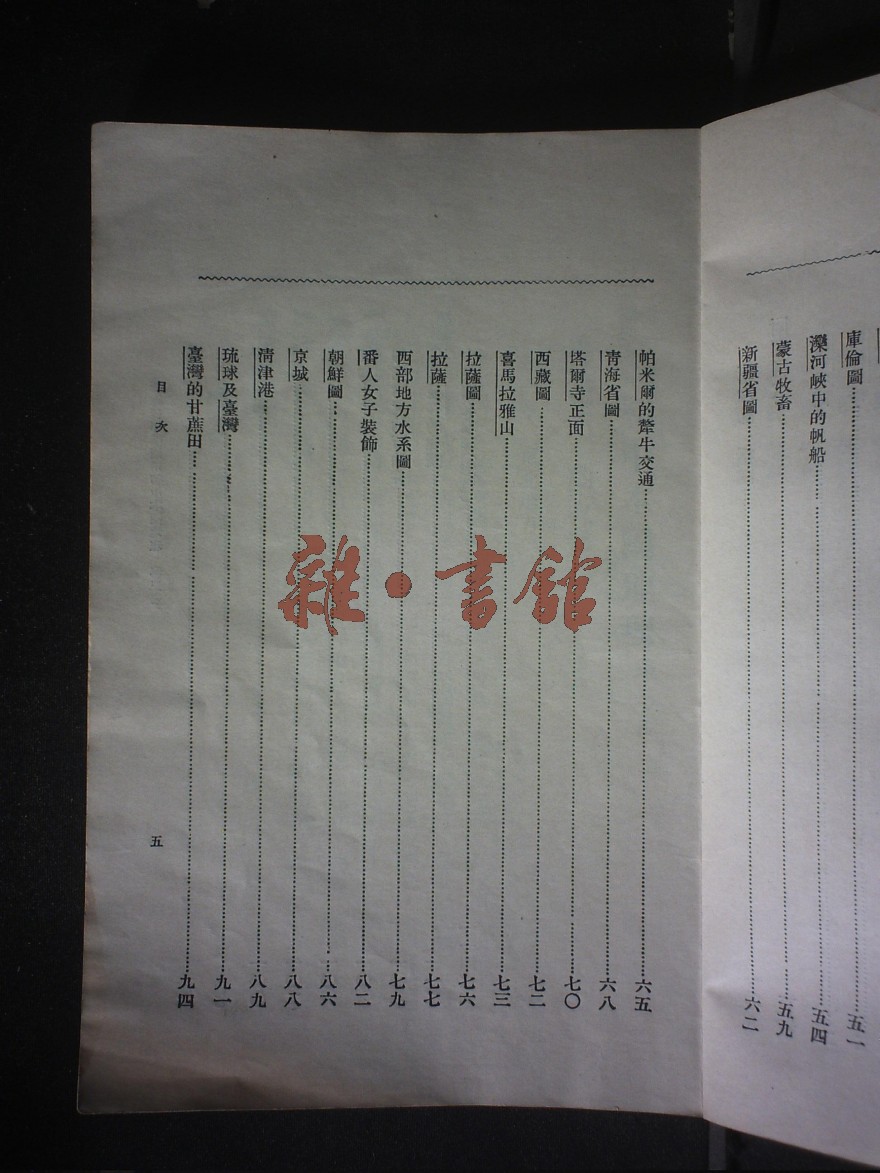 庫倫圖……五一
灤河峽中的帆船……五四
蒙古牧畜……五九
新疆省圖……六二
帕米爾的犛牛交通……六五
青海省圖……六八
塔爾寺正面……七〇
西藏圖……七二
喜馬拉雅山……七三
拉薩圖……七六
拉薩……七七
西部地方水系圖……七九
番人女子裝飾……八二
朝鮮圖……八六
京城……八八
清津港……八九
琉球及臺灣……九一
臺灣的甘蔗田……九四
目次
五
雜·書館